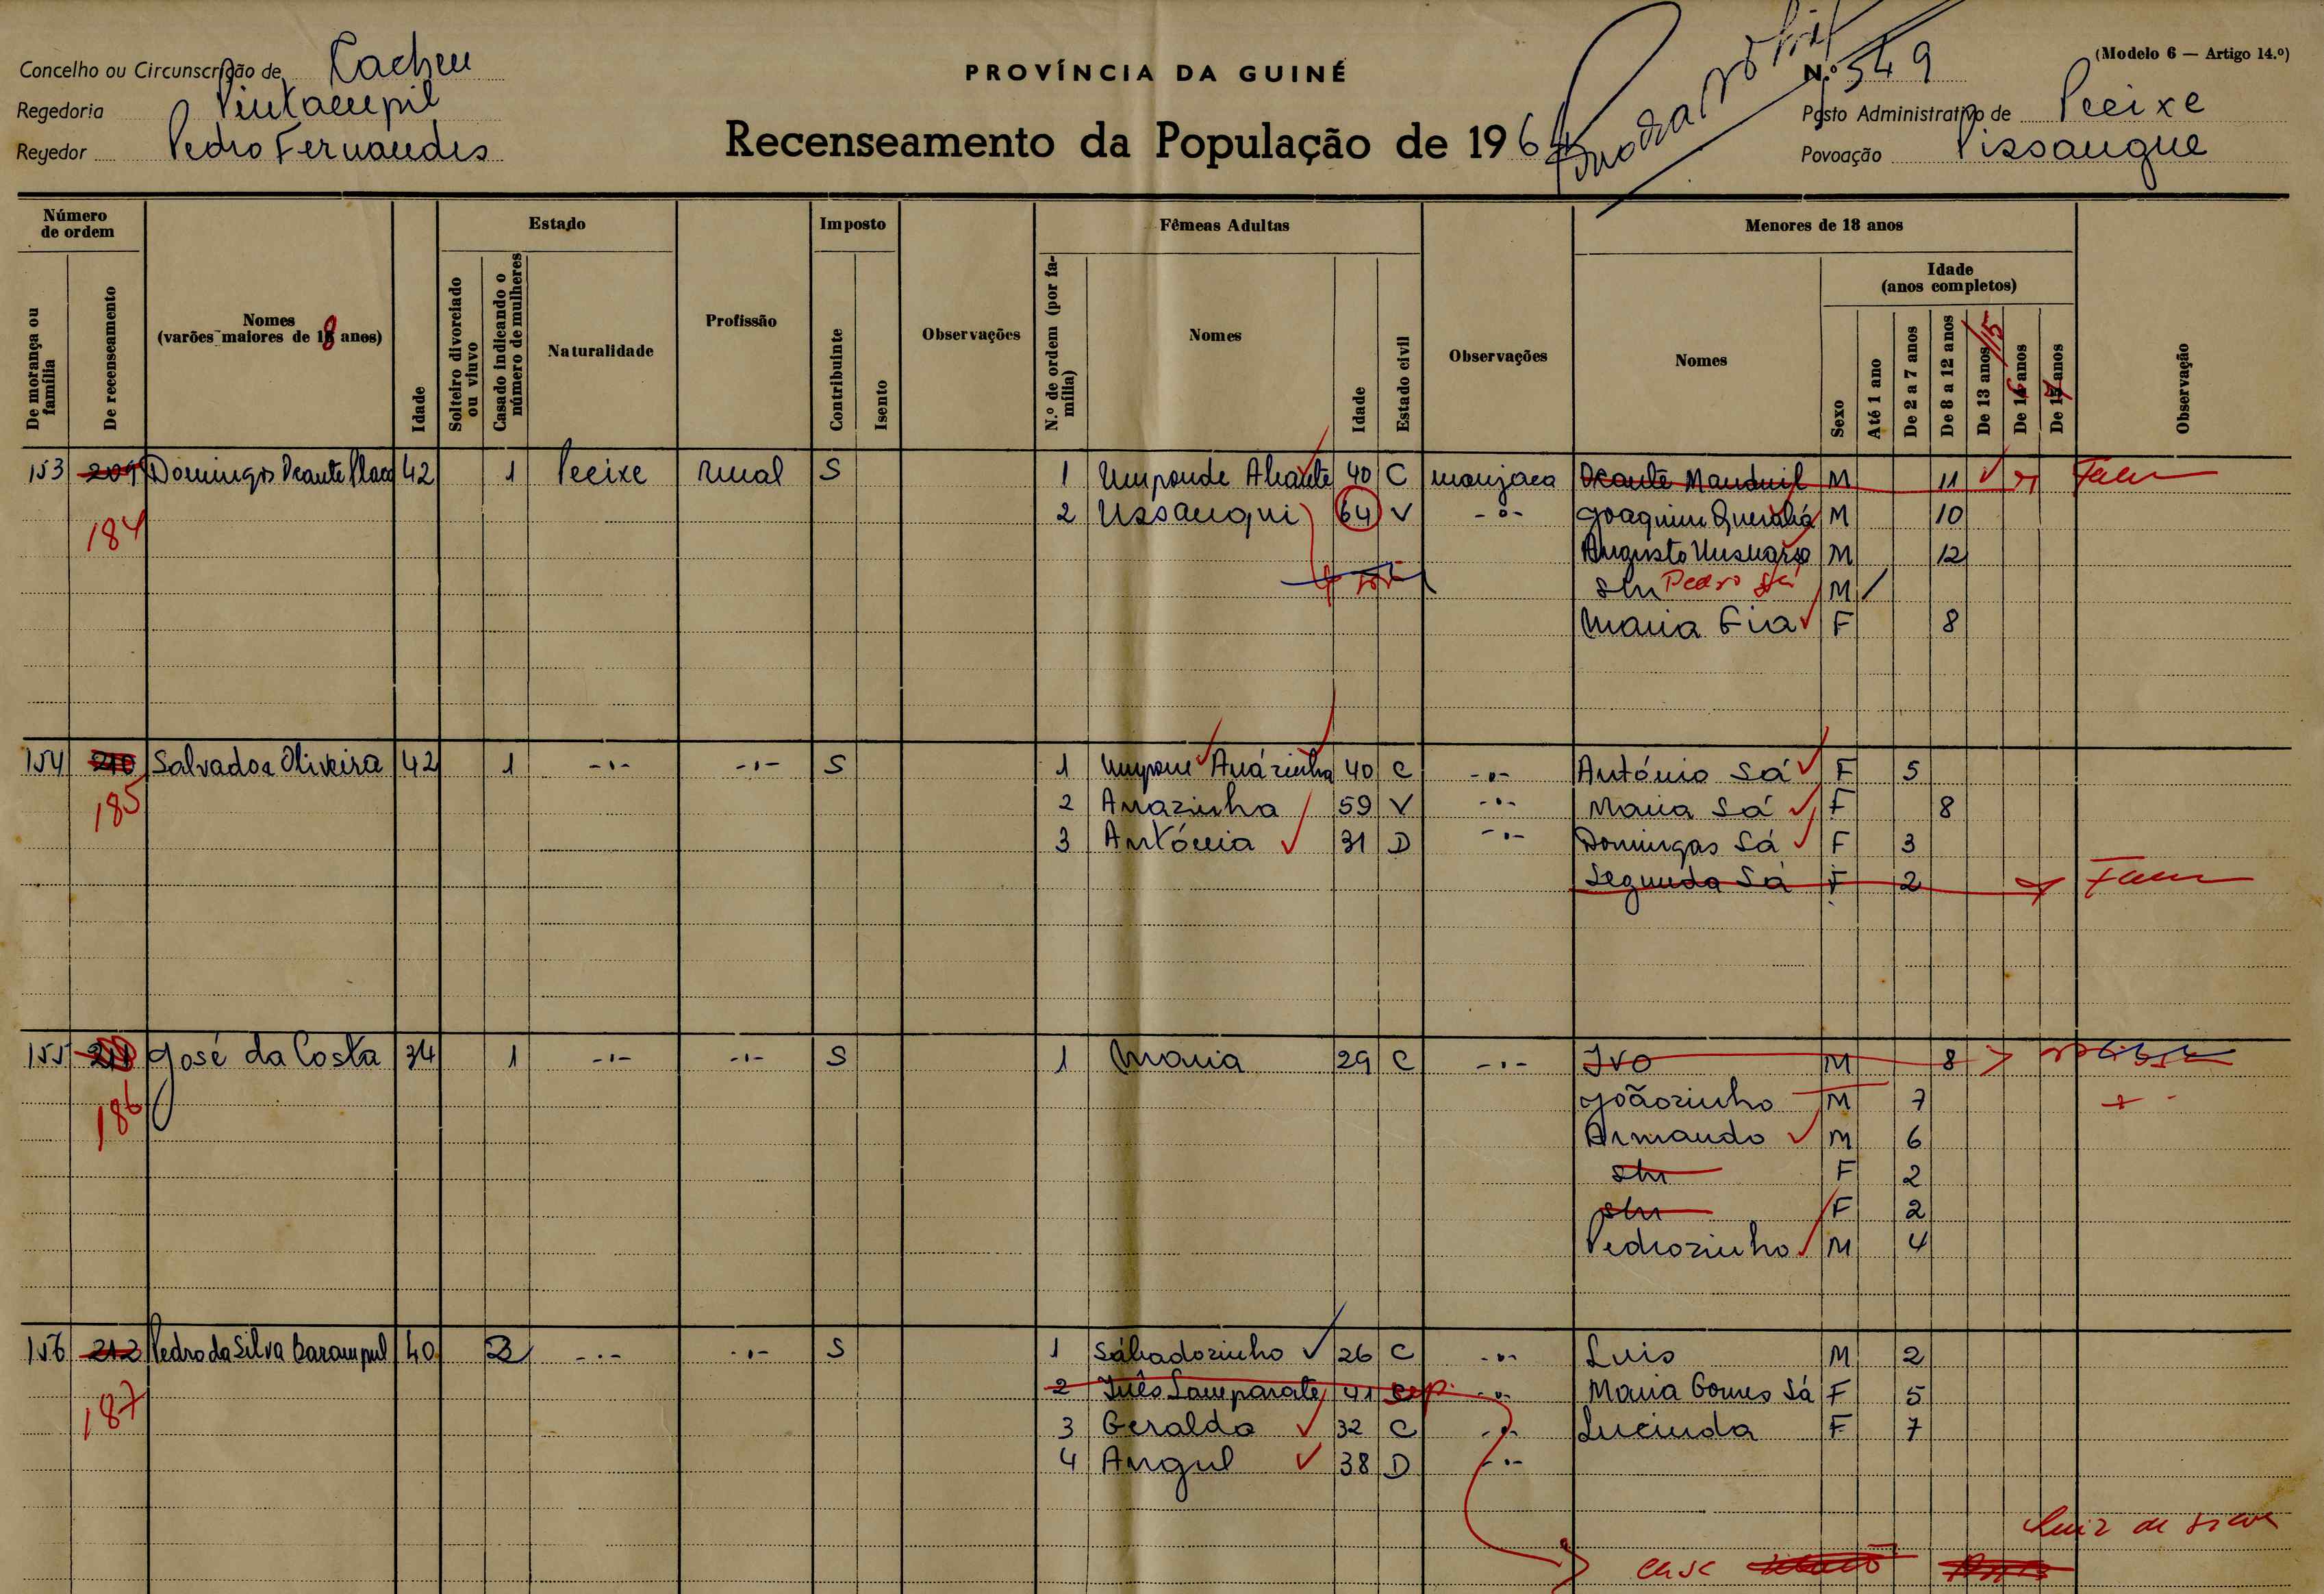 Concelho ou Circunscrição de Cacheu
Regedoria
Regedor Pedro Fernandes
PROVÍNCIA DA GUINÉ
Recenseamento da População de 1964
N.º 549
(Modelo 6 — Artigo 14.º)
Posto Administrativo de Pecixe
Povoação Pissangue
Número de ordem
De morança ou família
De recenseamento
Nomes
(varões maiores de 18 anos)
Idade
Estado
Solteiro divorciado ou viuvo
Casado indicando o número de mulheres
Naturalidade
Profissão
Imposto
Contribuinte
Isento
Observações
Fêmeas Adultas
N.º de ordem (por família)
Nomes
Idade
Estado civil
Observações
Menores de 18 anos
Nomes
Sexo
Idade
(anos completos)
Até 1 ano
De 2 a 7 anos
De 8 a 12 anos
De 13 anos /15
De 16 anos
De 17 anos
Observação
153 209 Domingos 42 1 Pecixe rural S 1 40 C manjaca M 11
184 2 Ussangui 64 V -o- Joaquim M 10
Augusto M 12
Pedro Sá M
Maria F 8
154 210 Salvador Oliveira 42 1 -"- -"- S 1 40 C -"- António Sá F 5
185 2 Anazinha 59 V -"- Maria Sá F 8
3 Antónia 31 D -"- Domingas Sá F 3
Segunda Sá F 2
155 211 José da Costa 34 1 -"- -"- S 1 Maria 29 C -"- Ivo M 8
186 Joãozinho M 7
Armando M 6
F 2
F 2
Pedrozinho M 4
156 212 Pedro da Silva 40 2 -"- -"- S 1 Sábadozinho 26 C -"- Luis M 2
187 2 Inês 41 -"- Maria Gomes Sá F 5
3 Geralda 32 C -"- Lucinda F 7
4 Angul 38 D -"-